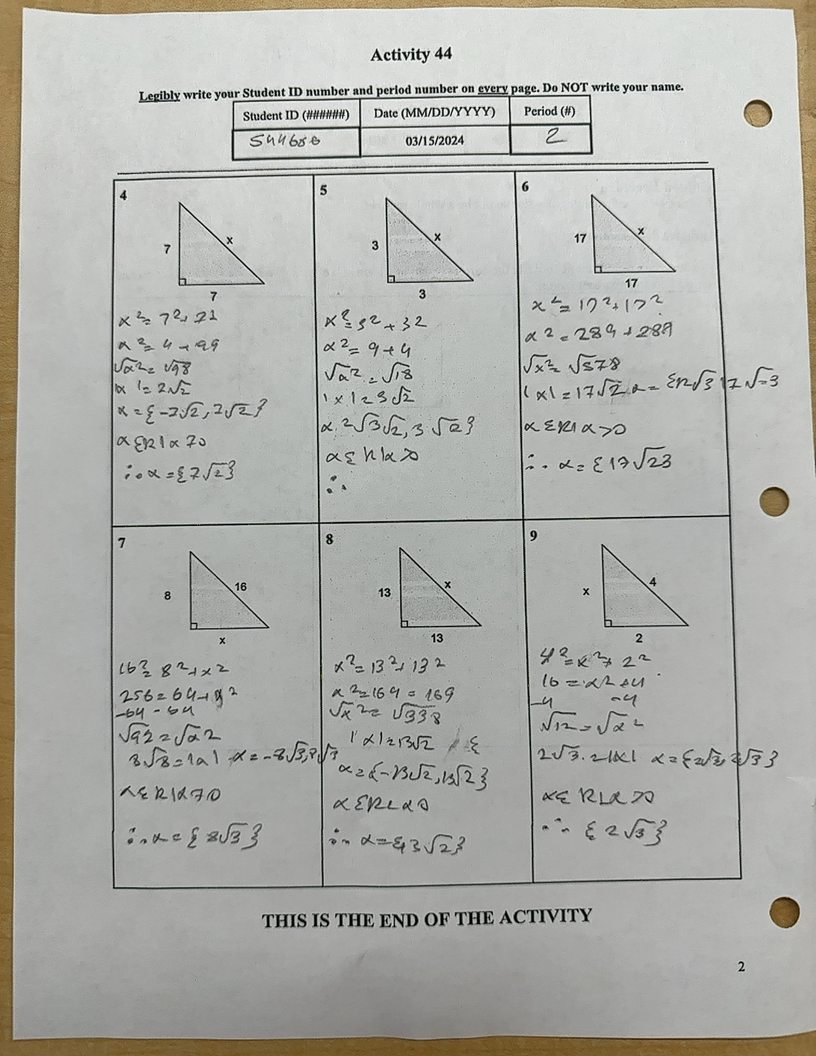 Activity 44
Legibly write your Student ID number and period number on every page. Do NOT write your name.
Student ID (######) Date (MM/DD/YYYY) Period (#)
03/15/2024 2
4
7
x
7
x²= 7²+
x²= 4+99
√x²= √98
x = {-7√2, 7√2}
∴ x = {7√2}
5
3
x
3
x²= 3²+32
x²= 9+4
√x² = √18
|x| = 3√2
∴
6
17
x
17
x²= 17²+17²
x²= 289+289
√x²= √578
|x| = 17√2
x ∈ R| x>0
∴ x= {17√2}
7
8
16
x
16²= 8²+x²
256= 64+x²
-64 -64
√x2
∴ x = {8√3}
8
13
x
13
x²= 13²+13²
x²= 169+169
√x²= √338
|x|= 13√2
x= {-13√2, 13√2}
∴ x= {13√2}
9
x
4
2
4²= x²+2²
16 = x²+4
-4 -4
√12 = √x²
2√3 = |x|
∴ {2√3}
THIS IS THE END OF THE ACTIVITY
2